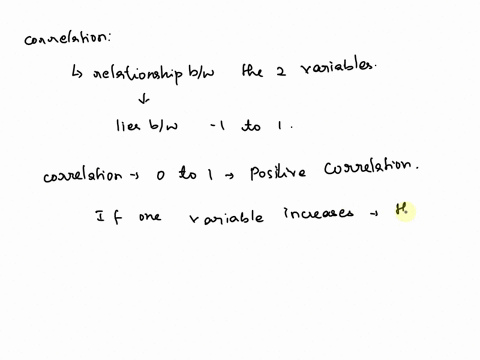 correlation:
↳ relationship b/w the 2 variables.
↓
lies b/w -1 to 1.
correlation → 0 to 1 → Positive Correlation.
If one variable increases →